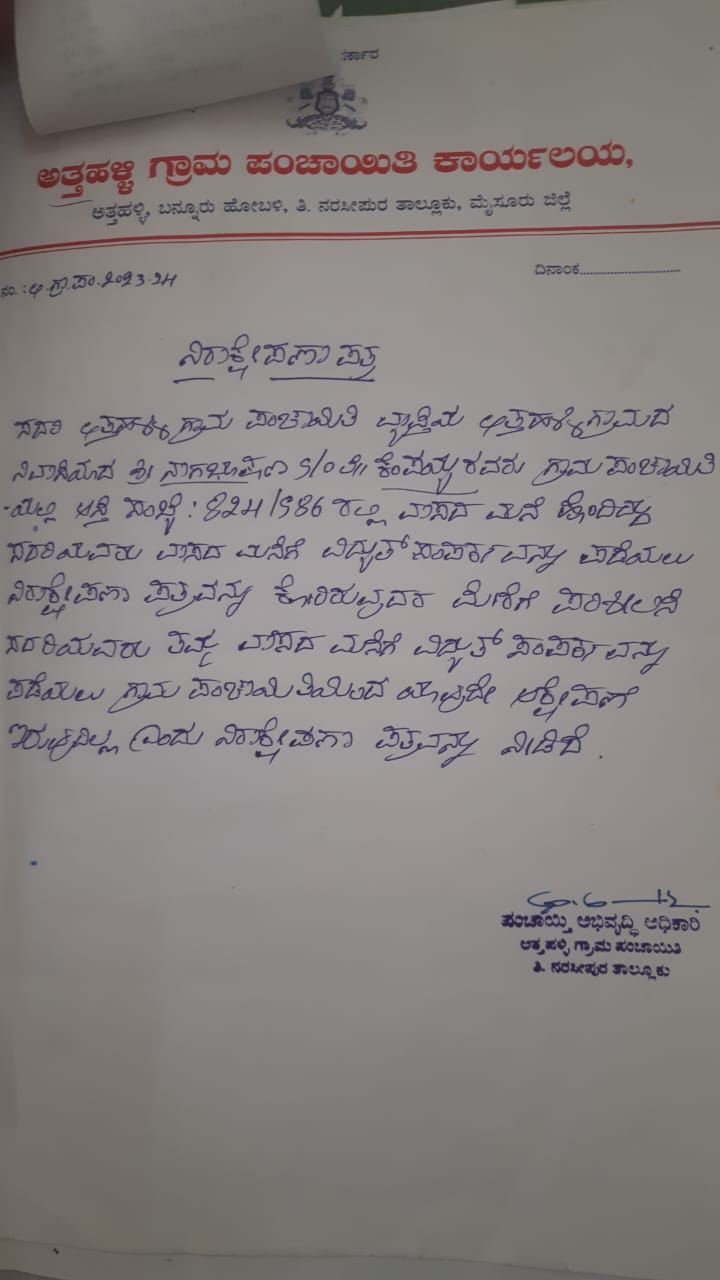 ರ್ಕಾರ
ಅತ್ತಹಳ್ಳಿ ಗ್ರಾಮ ಪಂಚಾಯಿತಿ ಕಾರ್ಯಲಯ,
ಅತ್ತಹಳ್ಳಿ, ಬನ್ನೂರು ಹೋಬಳಿ, ತಿ. ನರಸೀಪುರ ತಾಲ್ಲೂಕು, ಮೈಸೂರು ಜಿಲ್ಲೆ
ನಂ. : ಅ.ಗ್ರಾ.ಪಂ.2023-24 ದಿನಾಂಕ............................
ನಿರಾಕ್ಷೇಪಣಾ ಪತ್ರ
ಸದರಿ ಅತ್ತಹಳ್ಳಿ ಗ್ರಾಮ ಪಂಚಾಯಿತಿ ವ್ಯಾಪ್ತಿಯ ಅತ್ತಹಳ್ಳಿ ಗ್ರಾಮದ
ನಿವಾಸಿಯಾದ ಶ್ರೀ ನಾಗಭೂಷಣ S/O ಲೇ॥ ಕೆಂಪಯ್ಯ ರವರು ಗ್ರಾಮ ಪಂಚಾಯಿತಿ
-ಯಲ್ಲಿ ಆಸ್ತಿ ಸಂಖ್ಯೆ: 824/586 ರಲ್ಲಿ ವಾಸದ ಮನೆ ಹೊಂದಿದ್ದು
ಸದರಿಯವರು ವಾಸದ ಮನೆಗೆ ವಿದ್ಯುತ್ ಸಂಪರ್ಕವನ್ನು ಪಡೆಯಲು
ನಿರಾಕ್ಷೇಪಣಾ ಪತ್ರವನ್ನು ಕೋರಿರುವುದರ ಮೇರೆಗೆ ಪರಿಶೀಲಿಸಿ
ಸದರಿಯವರು ತಮ್ಮ ವಾಸದ ಮನೆಗೆ ವಿದ್ಯುತ್ ಸಂಪರ್ಕವನ್ನು
ಪಡೆಯಲು ಗ್ರಾಮ ಪಂಚಾಯಿತಿಯಿಂದ ಯಾವುದೇ ಆಕ್ಷೇಪಣೆ
ಇರುವುದಿಲ್ಲ ಎಂದು ನಿರಾಕ್ಷೇಪಣಾ ಪತ್ರವನ್ನು ನೀಡಿದೆ.
ಪಂಚಾಯ್ತಿ ಅಭಿವೃದ್ಧಿ ಅಧಿಕಾರಿ
ಅತ್ತಹಳ್ಳಿ ಗ್ರಾಮ ಪಂಚಾಯಿತಿ
ತಿ. ನರಸೀಪುರ ತಾಲ್ಲೂಕು